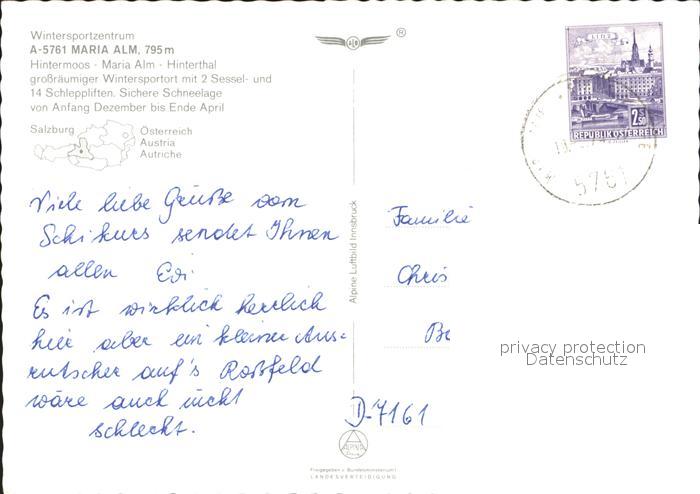 Wintersportzentrum
A-5761 MARIA ALM, 795 m
Hintermoos · Maria Alm · Hinterthal
großräumiger Wintersportort mit 2 Sessel- und
14 Schleppliften. Sichere Schneelage
von Anfang Dezember bis Ende April
Salzburg
Österreich
Austria
Autriche
Viele liebe Grüße vom
Schikurs sendet Ihnen
allen Edi
Es ist wirklich herrlich
hier aber ein kleiner Aus-
rutscher auf's Roßfeld
wäre auch nicht
schlecht.
Alpine Luftbild Innsbruck
®
LINZ
2.50
REPUBLIK ÖSTERREICH
Familie
Chris
Be
privacy protection
Datenschutz
D-7161
ALPINE
Freigegeben v. Bundesministerium f.
LANDESVERTEIDIGUNG